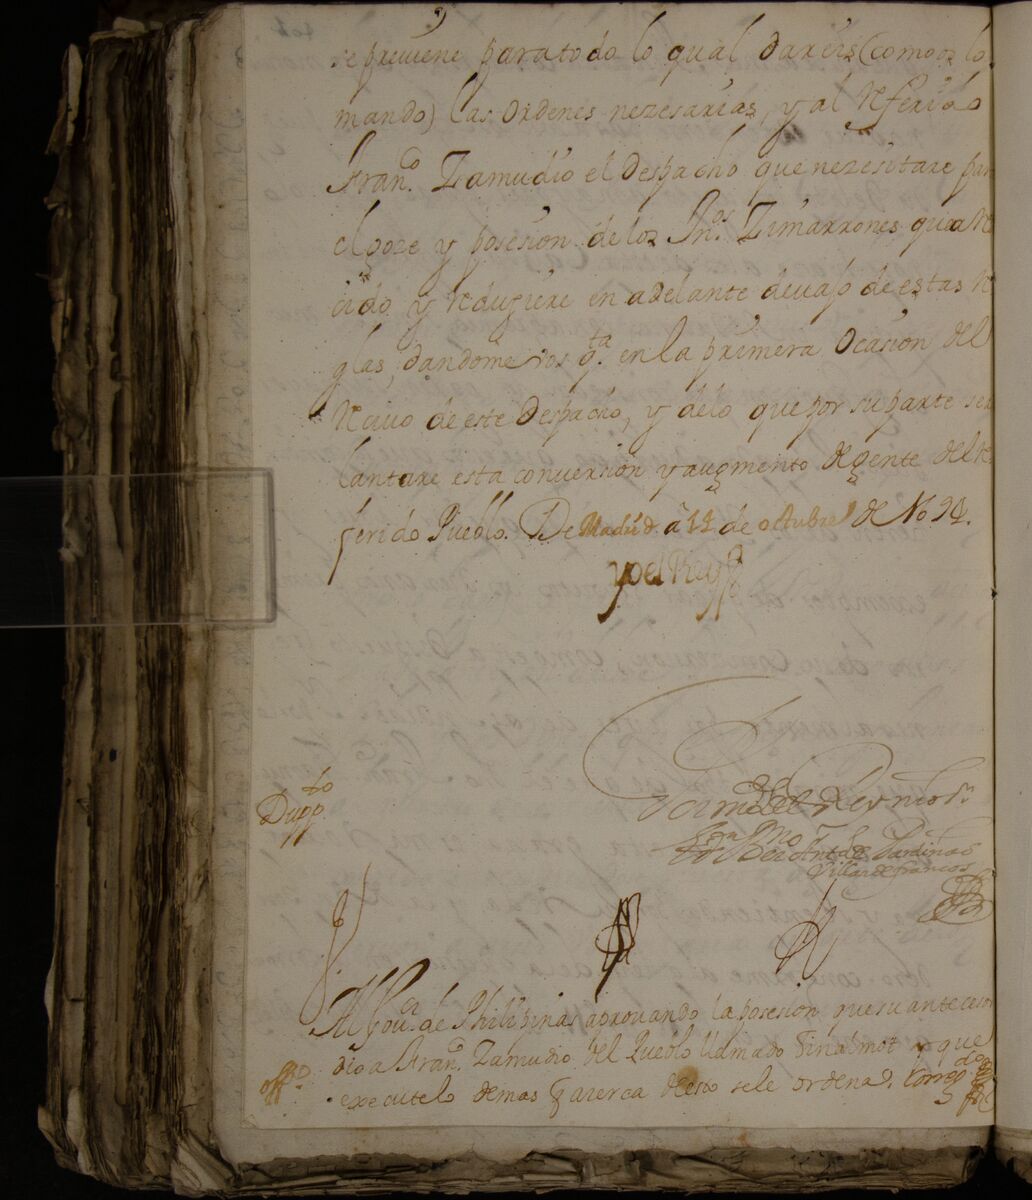 se preuiene para todo lo qual dareis (como os lo
mando) las ordenes nezesarias, y al referido
Fran.co Zamudio el Despacho que nezesitare para
el goze y posesion de los Yn.os Zimarrones que a re
cido y redugiere en adelante deuajo de estas re
glas, dandome vos q.ta en la primera ocasion del
reciuo de este Despacho, y de lo que por su parte
lantare esta conuersion y augmento de gente del re
ferido Pueblo. De Madrid a 14 de octubre de No 94.
yo el Rey
Dupp.do
Por m.do del Rey nro s.r
Don Ber.no Ant.o de Pardinas
Villar de francos
Al Gou.or de Philipinas aprouando la posesion que su antecesor
dio a Fran.co Zamudio del Pueblo llamado Tinalmot y que
off.o
execute lo demas q azerca desto se le ordena. Correg.do